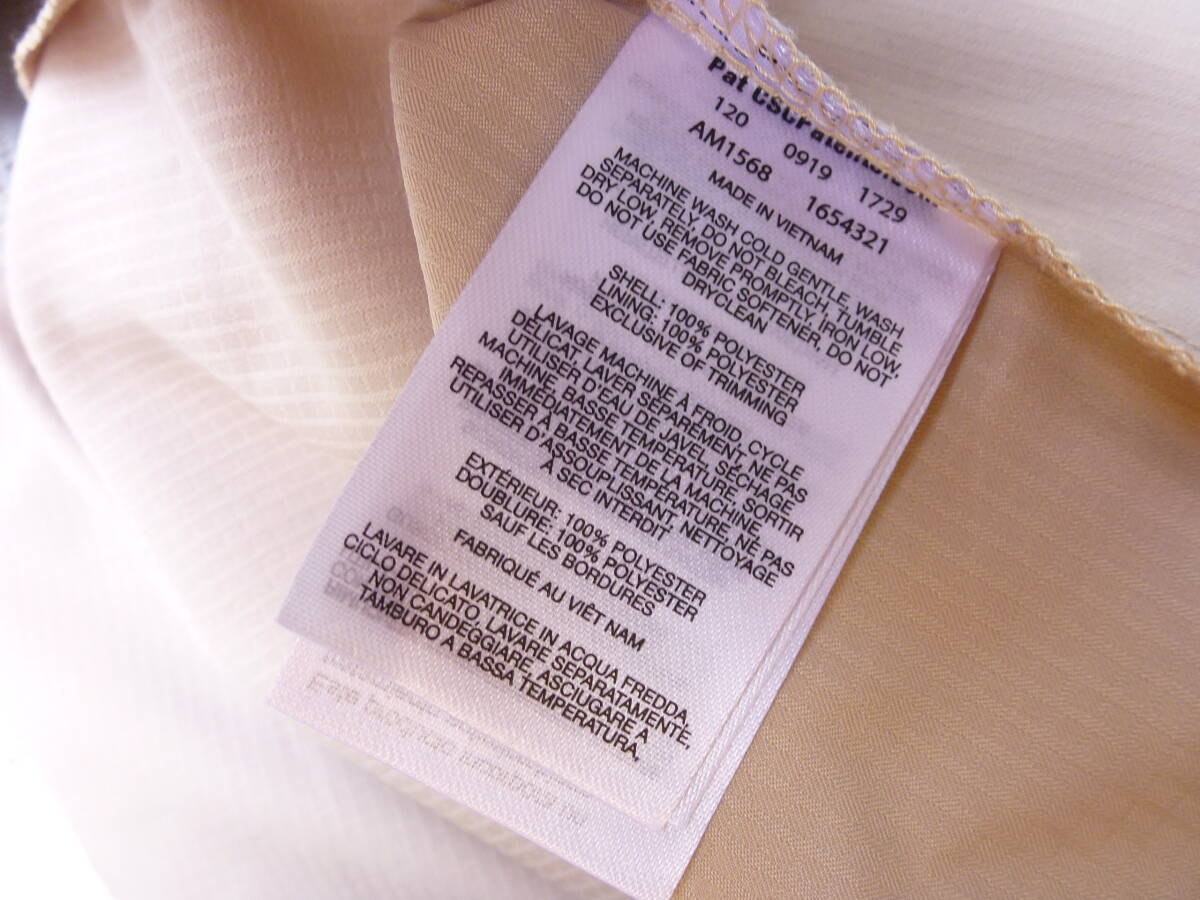 120 0919 1729
AM1568 1654321
MADE IN VIETNAM
MACHINE WASH COLD GENTLE, WASH
SEPARATELY, DO NOT BLEACH, TUMBLE
DRY LOW, REMOVE PROMPTLY, IRON LOW,
DO NOT USE FABRIC SOFTENER, DO NOT
DRYCLEAN
SHELL: 100% POLYESTER
LINING: 100% POLYESTER
EXCLUSIVE OF TRIMMING
LAVAGE MACHINE À FROID, CYCLE
DÉLICAT, LAVER SÉPARÉMENT, NE PAS
UTILISER D'EAU DE JAVEL, SÉCHAGE
MACHINE, BASSE TEMPÉRATURE, SORTIR
IMMÉDIATEMENT DE LA MACHINE,
REPASSER À BASSE TEMPÉRATURE, NE PAS
UTILISER D'ASSOUPLISSANT, NETTOYAGE
A SEC INTERDIT
EXTÉRIEUR: 100% POLYESTER
DOUBLURE: 100% POLYESTER
SAUF LES BORDURES
FABRIQUÉ AU VIÊT NAM
LAVARE IN LAVATRICE IN ACQUA FREDDA,
CICLO DELICATO, LAVARE SEPARATAMENTE,
NON CANDEGGIARE, ASCIUGARE A
TAMBURO A BASSA TEMPERATURA,